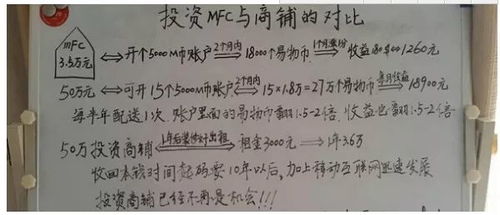 投资MFC与商铺的对比
MFC
3.5万元 ⟺ 开个5000M币账户 2个月内⟹ 18000个易物币 1个月 ⟹ 收益 1260元
50万元 ⟺ 可开15个5000M币账户 2个月内⟹ 15×1.8万=27万个易物币 每月收益⟹ 18900元
每半年配送1次,账户里面的易物币翻1.5-2倍,收益也翻1.5-2倍
50万投资商铺 1年后装修好出租⟹ 租金3000元 ⟹ 1年3.6万
收回本钱时间起码要10年以后,加上移动互联网迅速发展
投资商铺已经不再是机会!!!